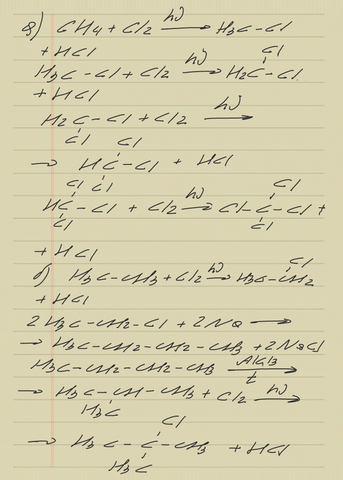 а) CH4 + Cl2 hν⟶ H3C–Cl
+ HCl
Cl
H3C–Cl + Cl2 hν⟶ H2C–Cl
+ HCl
H2C–Cl + Cl2 hν⟶
Cl
Cl
→ HC–Cl + HCl
Cl
Cl Cl
HC–Cl + Cl2 hν⟶ Cl–C–Cl +
Cl Cl
+ HCl
Cl
б) H3C–CH3 + Cl2 hν⟶ H3C–CH2
+ HCl
2H3C–CH2–Cl + 2Na ⟶
→ H3C–CH2–CH2–CH3 + 2NaCl
H3C–CH2–CH2–CH3 AlCl3⟶ t
→ H3C–CH–CH3 + Cl2 hν⟶
H3C
Cl
→ H3C–C–CH3 + HCl
H3C